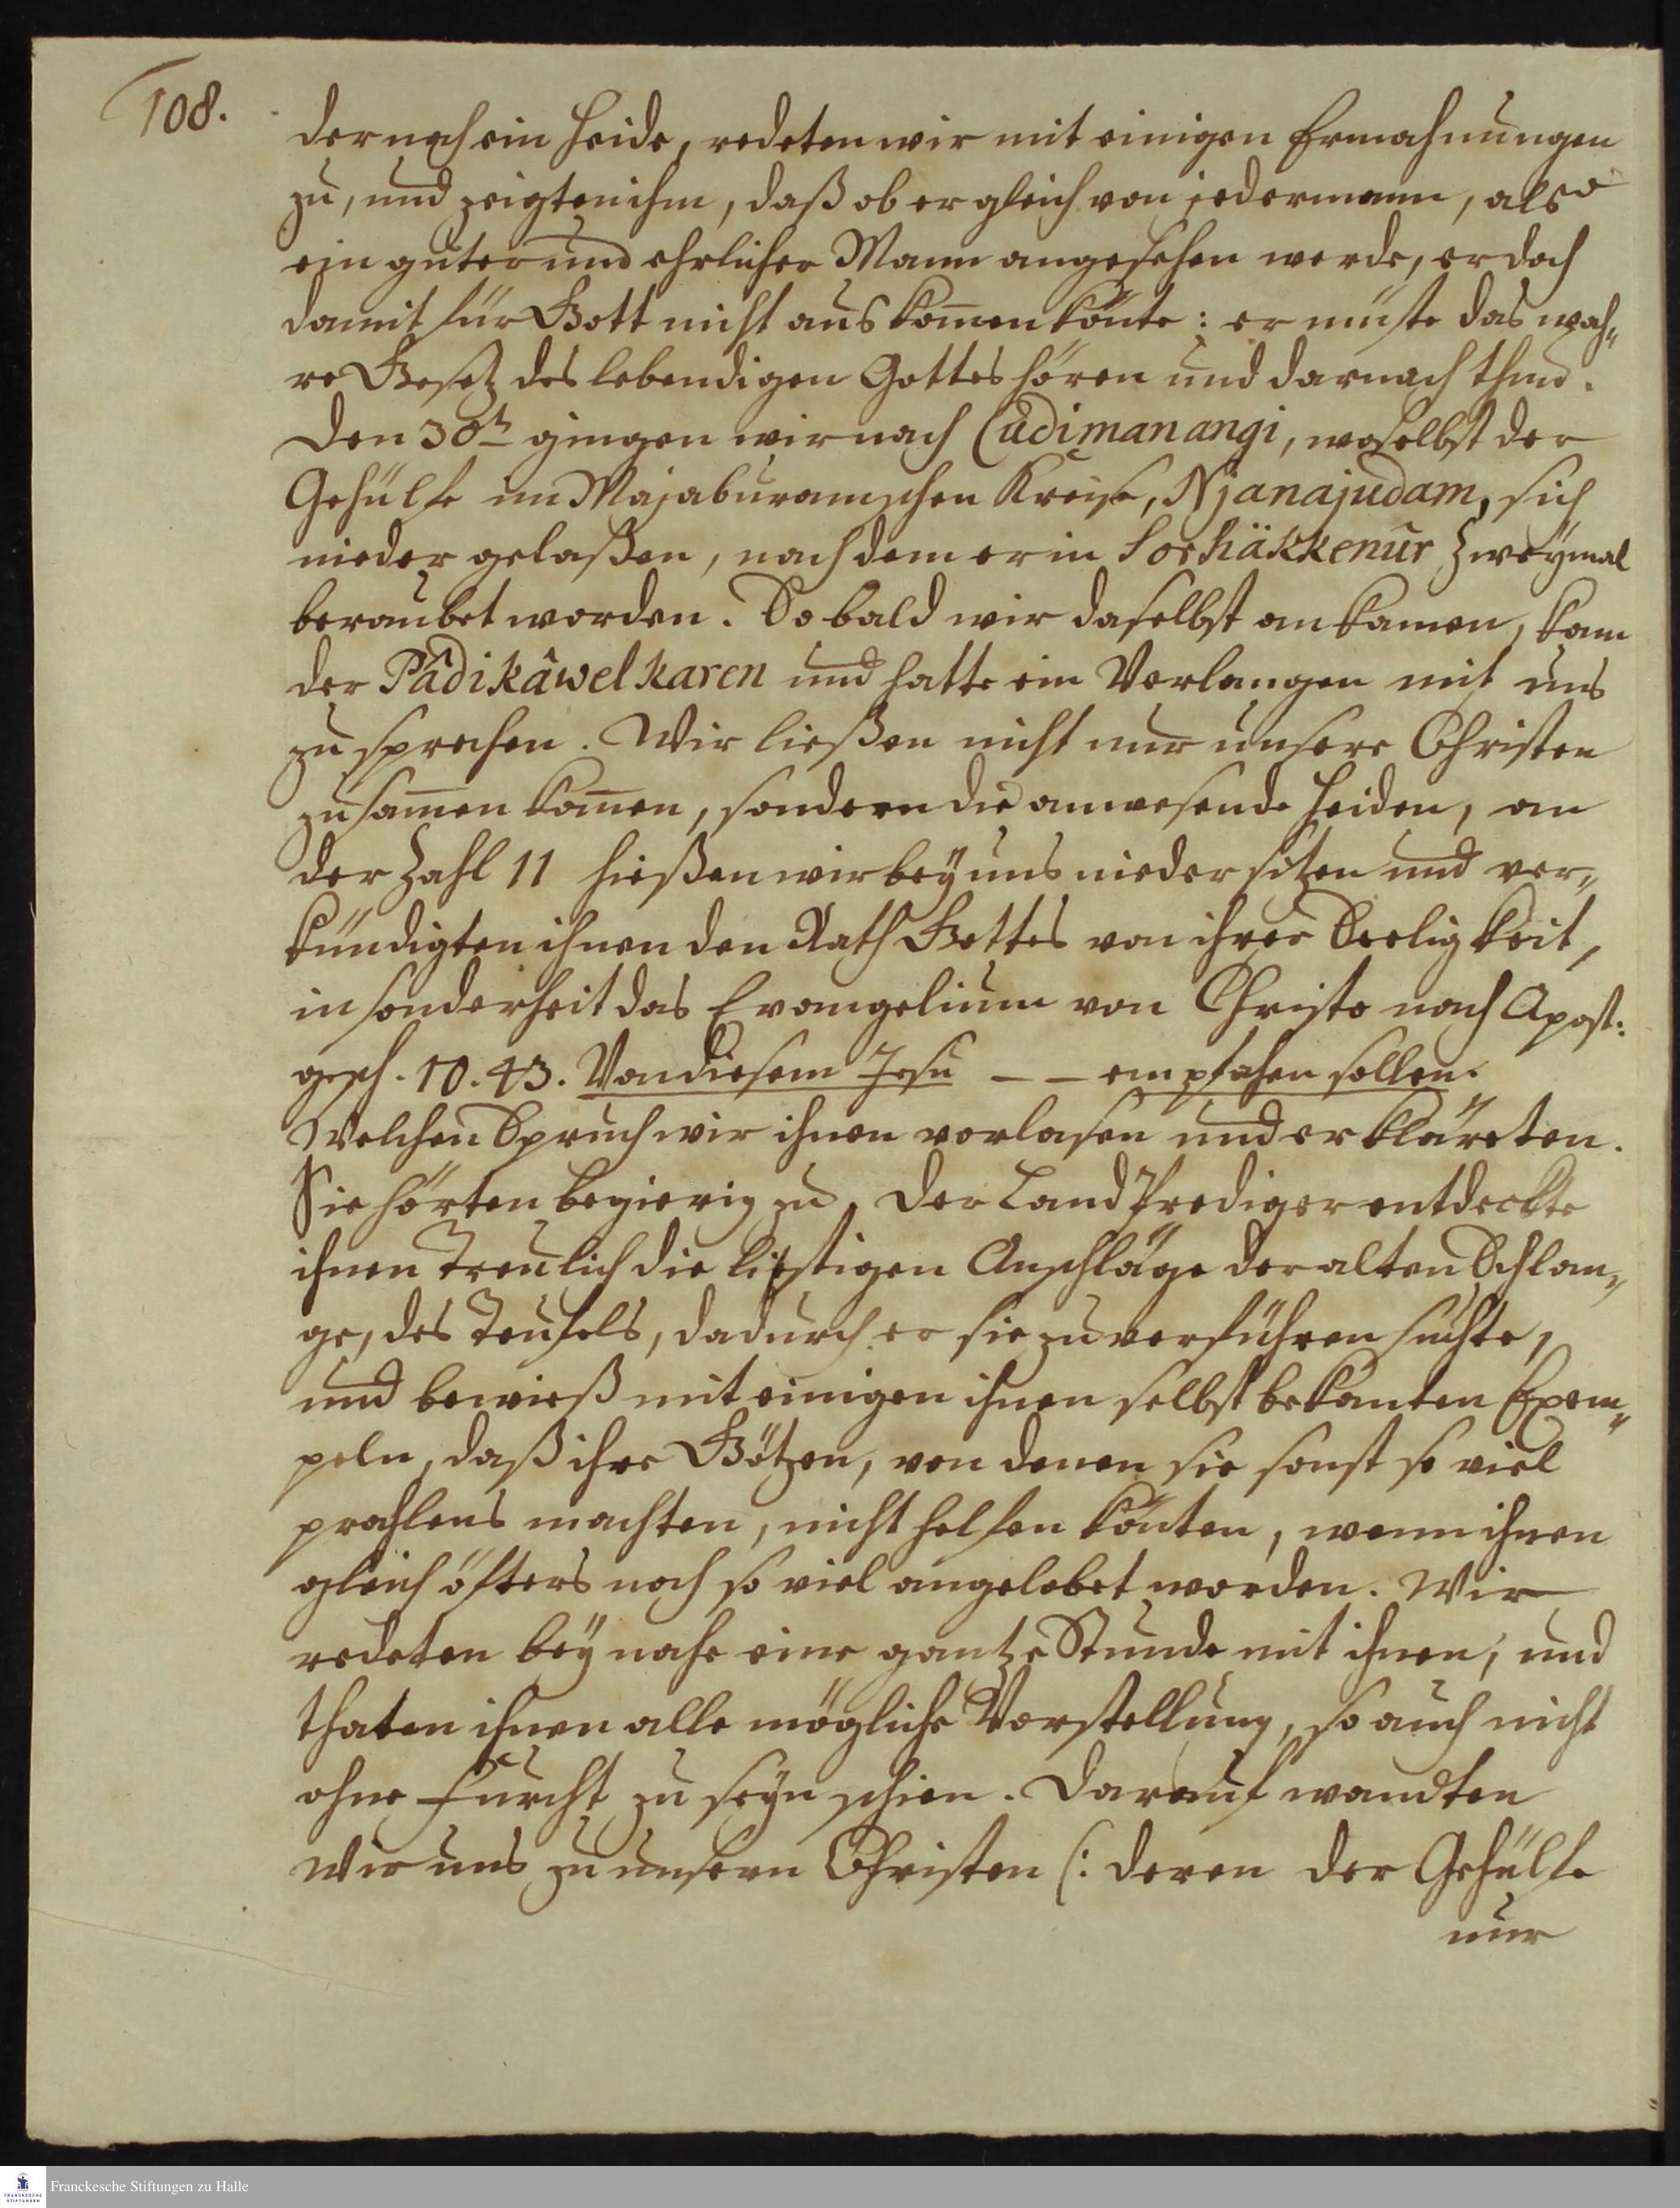 108.
der noch ein Heide, redeten wir mit einigen Ermahnungen
zu, und zeigten ihm, daß ob er gleich von jedermann, als
ein guter und ehrlicher Mann angesehen werde, er doch
damit für Gott nicht aus kom̅en kön̅te: er müste das wah„
re Gesetz des lebendigen Gottes hören und darnach thun.
Den 30t gingen wir nach Cudimanangi, woselbst der
Gehülfe im Majaburamschen Kreise, Njanajudam, sich
nieder gelaßen, nach dem er in Sorhäkkenur zweÿmal
beraubet worden. So bald wir daselbst an kamen, kam
der Pâdikâwelkaren und hatte ein Verlangen mit uns
zu sprechen. Wir ließen nicht nur unsere Christen
zusam̅en kom̅en, sondern die anwesende Heiden, an
der Zahl 11 hießen wir beÿ uns nieder sitzen und ver„
kündigten ihnen den Rath Gottes von ihrer Seeligkeit,
in sonderheit das Evangelium von Christo nach Apost:
gesch. 10. 43. Von diesem Jesu _ _ empfahen sollen.
Welchen Spruch wir ihnen vorlasen und erkläreten.
Sie hörten begierig zu. Der Land Prediger entdeckte
ihnen treulich die listigen Anschläge der alten Schlan„
ge, des Teufels, dadurch er sie zu verführen suchte,
und bewieß mit einigen ihnen selbst bekanten Exem„
peln, daß ihre Götzen, von denen sie sonst so viel
prahlens machten, nicht helfen könten, wenn ihnen
gleich öfters noch so viel angelobet worden. Wir
redeten beÿ nahe eine gantze Stunde mit ihnen, und
thaten ihnen alle mögliche Vorstellung, so auch nicht
ohne Furcht zu seÿn schien. Darauf wandten
wir uns zu unsern Christen (: deren der Gehülfe
nur
Franckesche Stiftungen zu Halle